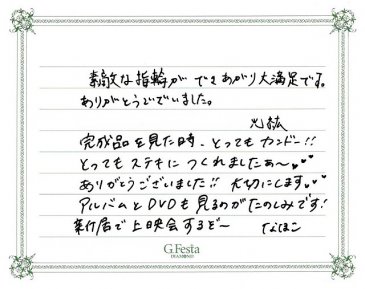 素敵な指輪ができあがり大満足です。
ありがとうございました。
光紘
完成品を見た時、とってもカンドー!!
とってもステキにつくれましたぁ〜♥♥
ありがとうございました!! 大切にします♥♥
アルバムとDVDも見るのがたのしみです!
新居で上映会するぞ〜 なほこ
G.Festa
DIAMOND